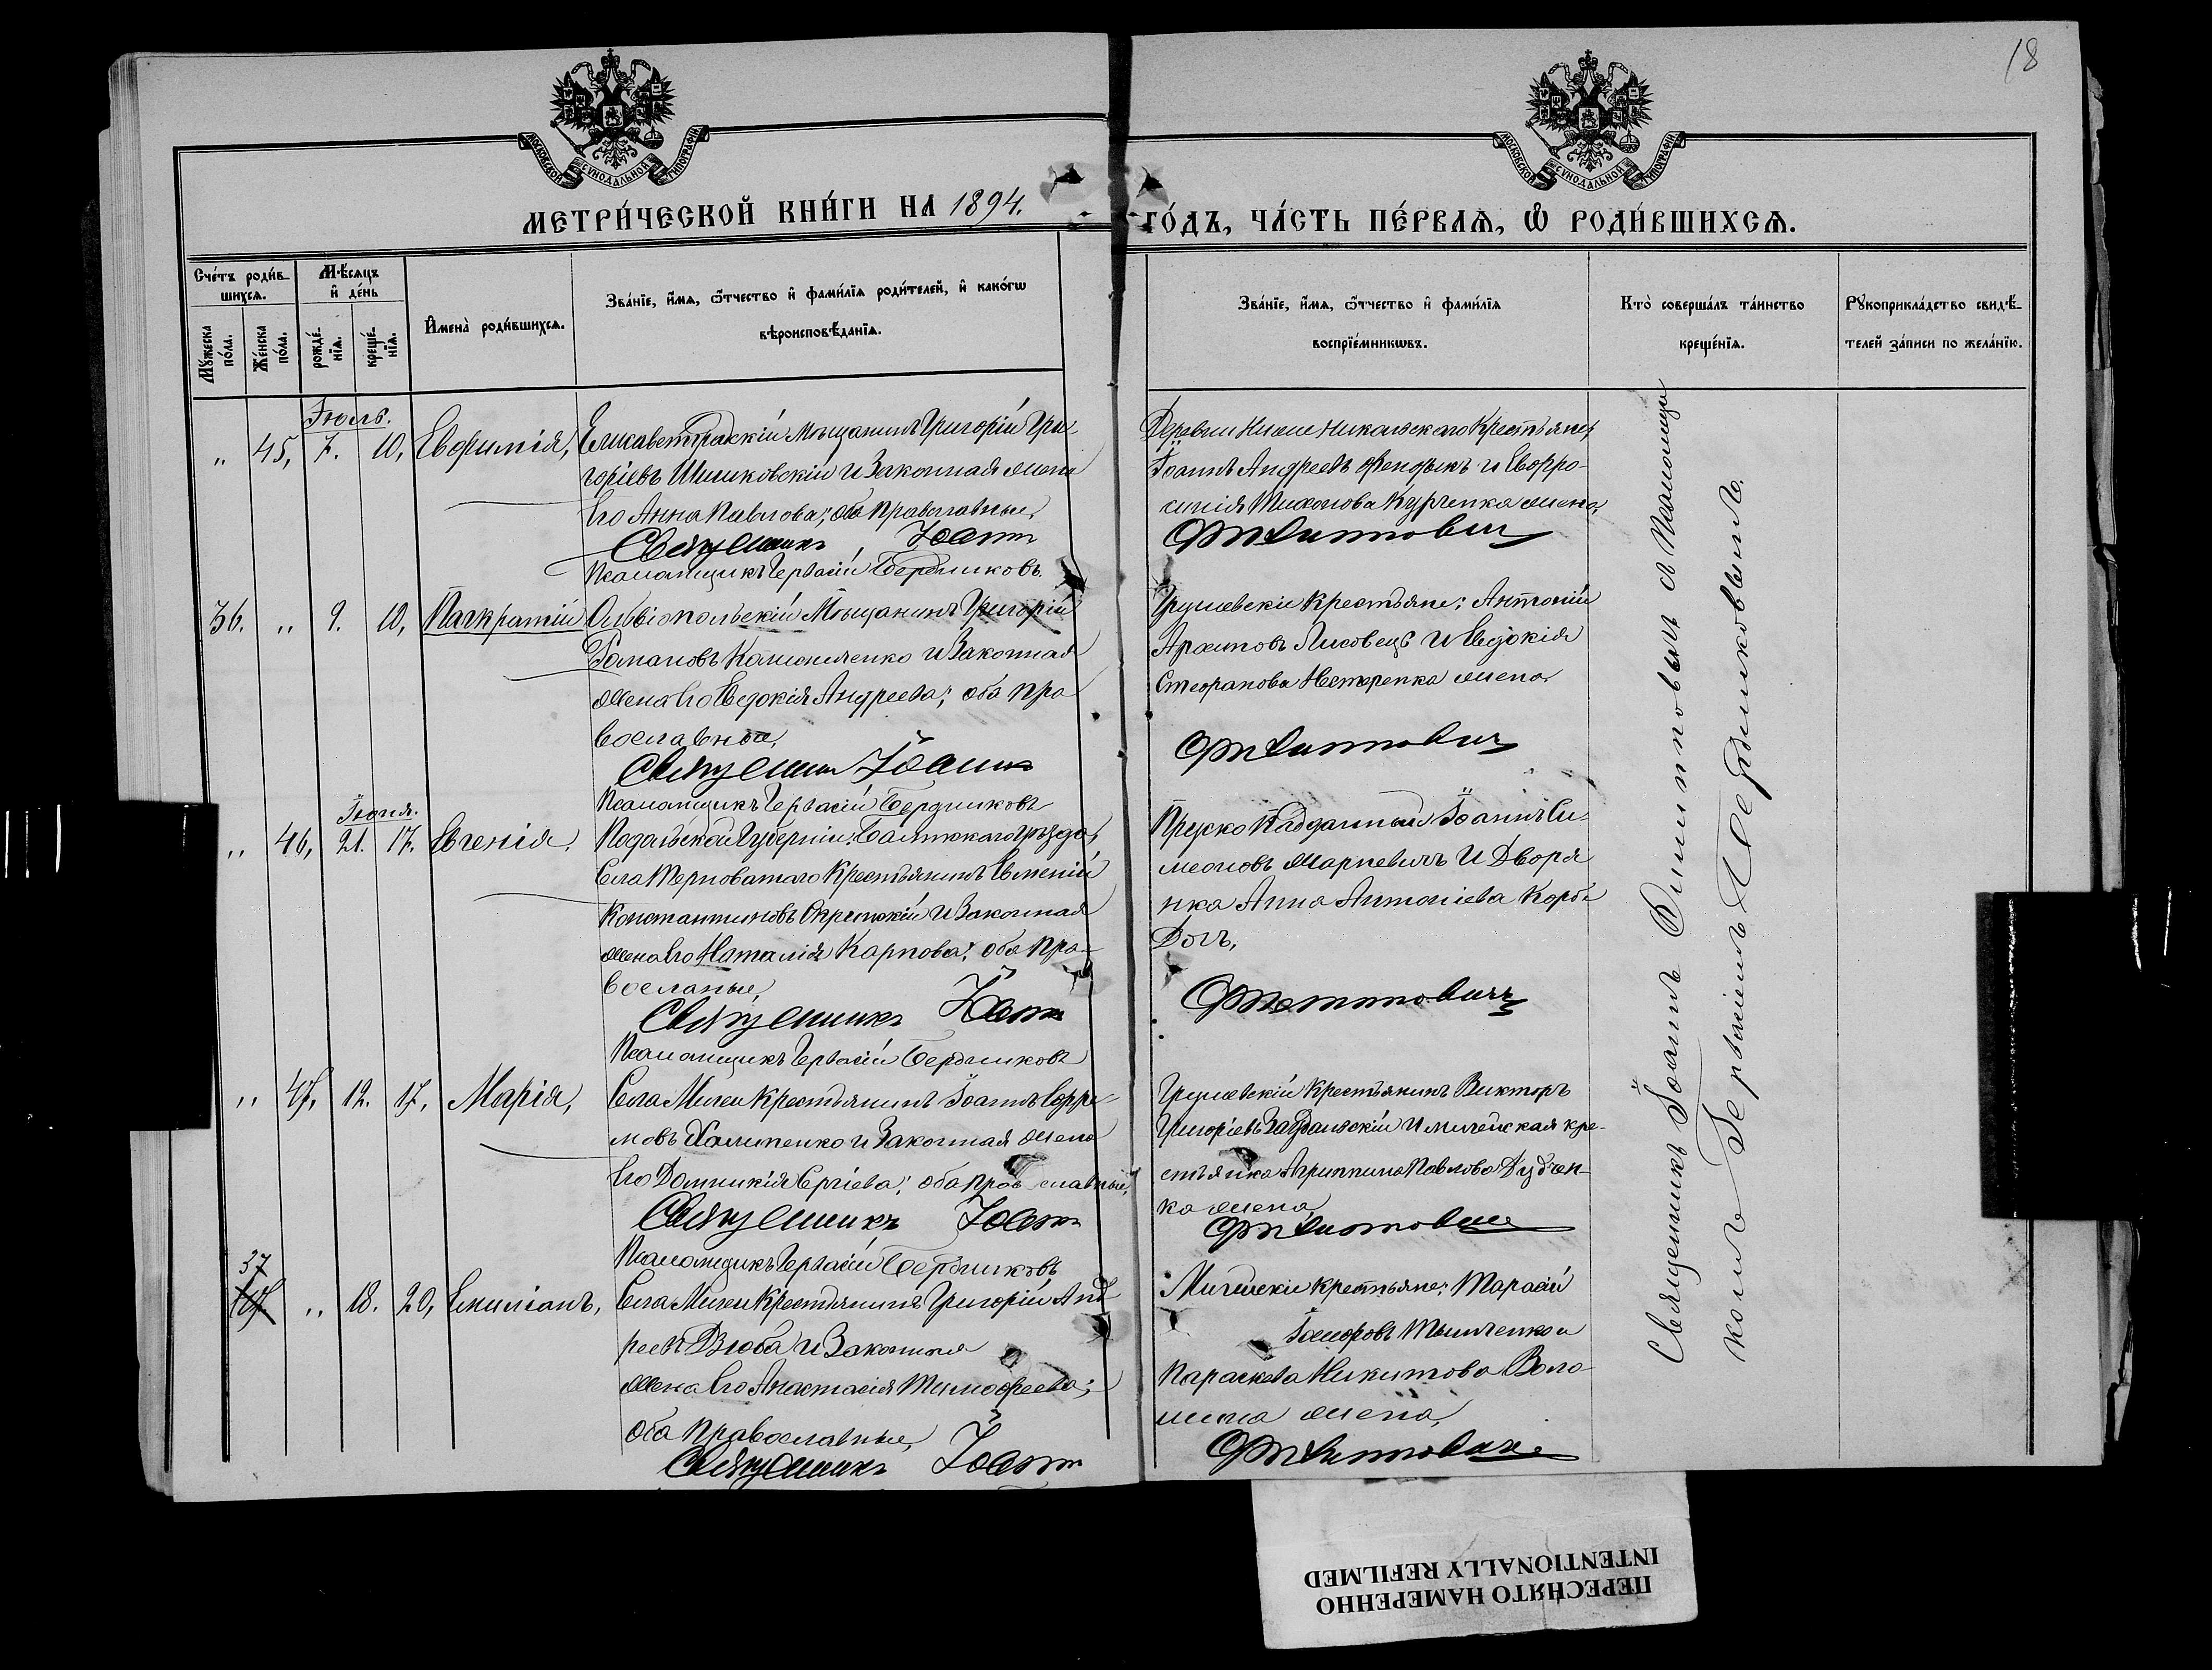 18
МОСКОВСКОЙ СѴНОДАЛЬНОЙ ТИПОГРАФІИ
МОСКОВСКОЙ СѴНОДАЛЬНОЙ ТИПОГРАФІИ
МЕТРИ́ЧЕСКОЙ КНИ́ГИ НА 1894.
ГО́ДЪ, ЧА́СТЬ ПЕ́РВАѦ, Ѿ РОДИ́ВШИХСѦ.
Сче́тъ роди́в-
шихсѧ.
Мꙋ́жеска
по́ла.
Же́нска
по́ла.
Мѣ́сѧцъ
и҆ де́нь
рожде́-
нїѧ.
креще́-
нїѧ.
И҆мена̀ роди́вшихсѧ.
Зва́нїе, и҆́мѧ, ѻ҆́тчество и҆ фами́лїѧ роди́телей, и҆ како́гѡ
вѣроисповѣ́данїѧ.
Зва́нїе, и҆́мѧ, ѻ҆́тчество и҆ фами́лїѧ
воспрїе́мникѡвъ.
Кто̀ соверша́лъ та́инство
креще́нїѧ.
Рꙋкоприкла́дство свидѣ́-
телей за́писи по жела́нїю.
Іюль.
„ 45, 7. 10, Евфимія,
Елисаветградскій мѣщанинъ Григорій Гри-
горіевъ Шишковскій и законная жена
его Анна Павлова; оба православные,
Священникъ Іоаннъ
Псаломщикъ Гервасій Бердниковъ.
Деревни Ниже Никольскаго крестьяне,
Іоаннъ Андреевъ и Евфро-
синія Тихонова жена,
36. „ 9. 10, Панкратій
Ольвіопольскій Мѣщанинъ Григорій
Романовъ и законная
жена его Евдокія Андреева; оба пра
вославные,
Священникъ Іоаннъ
Псаломщикъ Гервасій Бердниковъ
Грушевскіе крестьяне: Антоній
Архиповъ Лисовецъ и Евдокія
Стефанова Нестеренка жена,
Іюня.
„ 46, 21. 17. Евгенія.
Подольской Губерніи, Балтскаго уѣзда,
села Терноватаго крестьянинъ Евменій
Константиновъ и законная
жена его Наталія Карпова; оба пра-
вославные,
Священникъ Іоаннъ
Псаломщикъ Гервасій Бердниковъ
Прусско подданный Іоаннъ Си-
меоновъ и Дворя
нка Анна Антоніева
„ 47, 12. 17, Марія,
Села Мигеи крестьянинъ Іоаннъ Ефре-
мовъ Халипенко и законная жена
его Домникія Сергіева; оба православные,
Священникъ Іоаннъ
Псаломщикъ Гервасій Бердниковъ
Грушевскій крестьянинъ Викторъ
Григоріевъ и мигейская кре-
стьянка Агриппина Павлова Дубчен-
ка жена
37
„ 18. 20, Емиліанъ,
Села Мигеи крестьянинъ Григорій Анд
реевъ Дзюба и законная
жена его Анастасія Тимофеева;
оба православные,
Священникъ Іоаннъ
Мигейскіе крестьяне: Тарасій
Тимченко и
Параскева Никитова Воло-
шина жена,
Священникъ Іоаннъ съ псаломщи
комъ Гервасіемъ Бердниковымъ.
ПЕРЕСНЯТО НАМЕРЕННО
INTENTIONALLY REFILMED